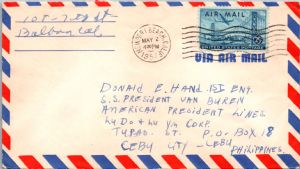 105-7th St
Balboa Cal.
NEWPORT BEACH, CALIF.
MAY 2
4 PM
AIR MAIL
UNITED STATES POSTAGE
VIA AIR MAIL
DONALD E. HAND 1ST ENG.
S.S. PRESIDENT VAN BUREN
AMERICAN PRESIDENT LINES
LU DO & LU YM CORP.
TUPAS ST. P.O. BOX 18
CEBU CITY - CEBU
PHILIPPINES.